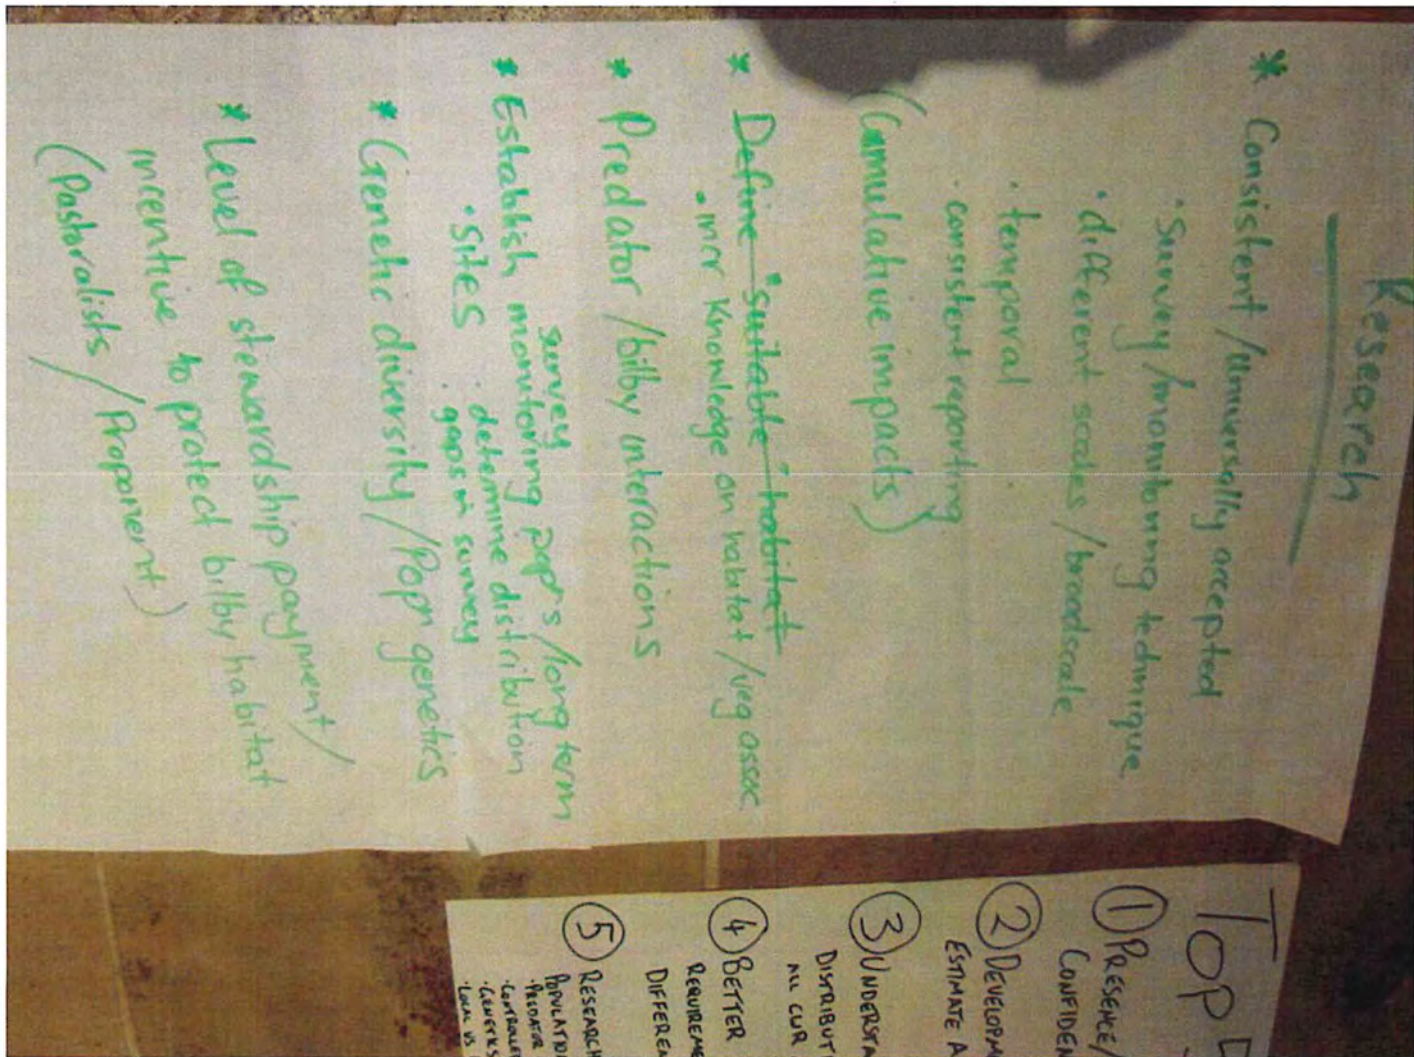 Research
* Consistent / universally accepted
· Survey / monitoring technique
· different scales / broadscale
· temporal
· consistent reporting
(Cumulative impacts)
* Define "suitable" habitat
· incr knowledge on habitat / veg assoc
* Predator / bilby interactions
survey
* Establish monitoring popn's / long term
· Sites · determine distribution
· gaps in survey
* Genetic diversity / Popn genetics
* Level of stewardship payment /
incentive to protect bilby habitat
(Pastoralists / Proponent)
TOP 5
① PRESENCE/
CONFIDEN
② DEVELOPM
ESTIMATE A
③ UNDERSTA
DISTRIBUT
ALL CUR
④ BETTER
REQUIREME
DIFFEREN
⑤ RESEARCH
POPULATION
· PREDATOR
· CONTROLLE
· GENETICS
· LOCAL VS